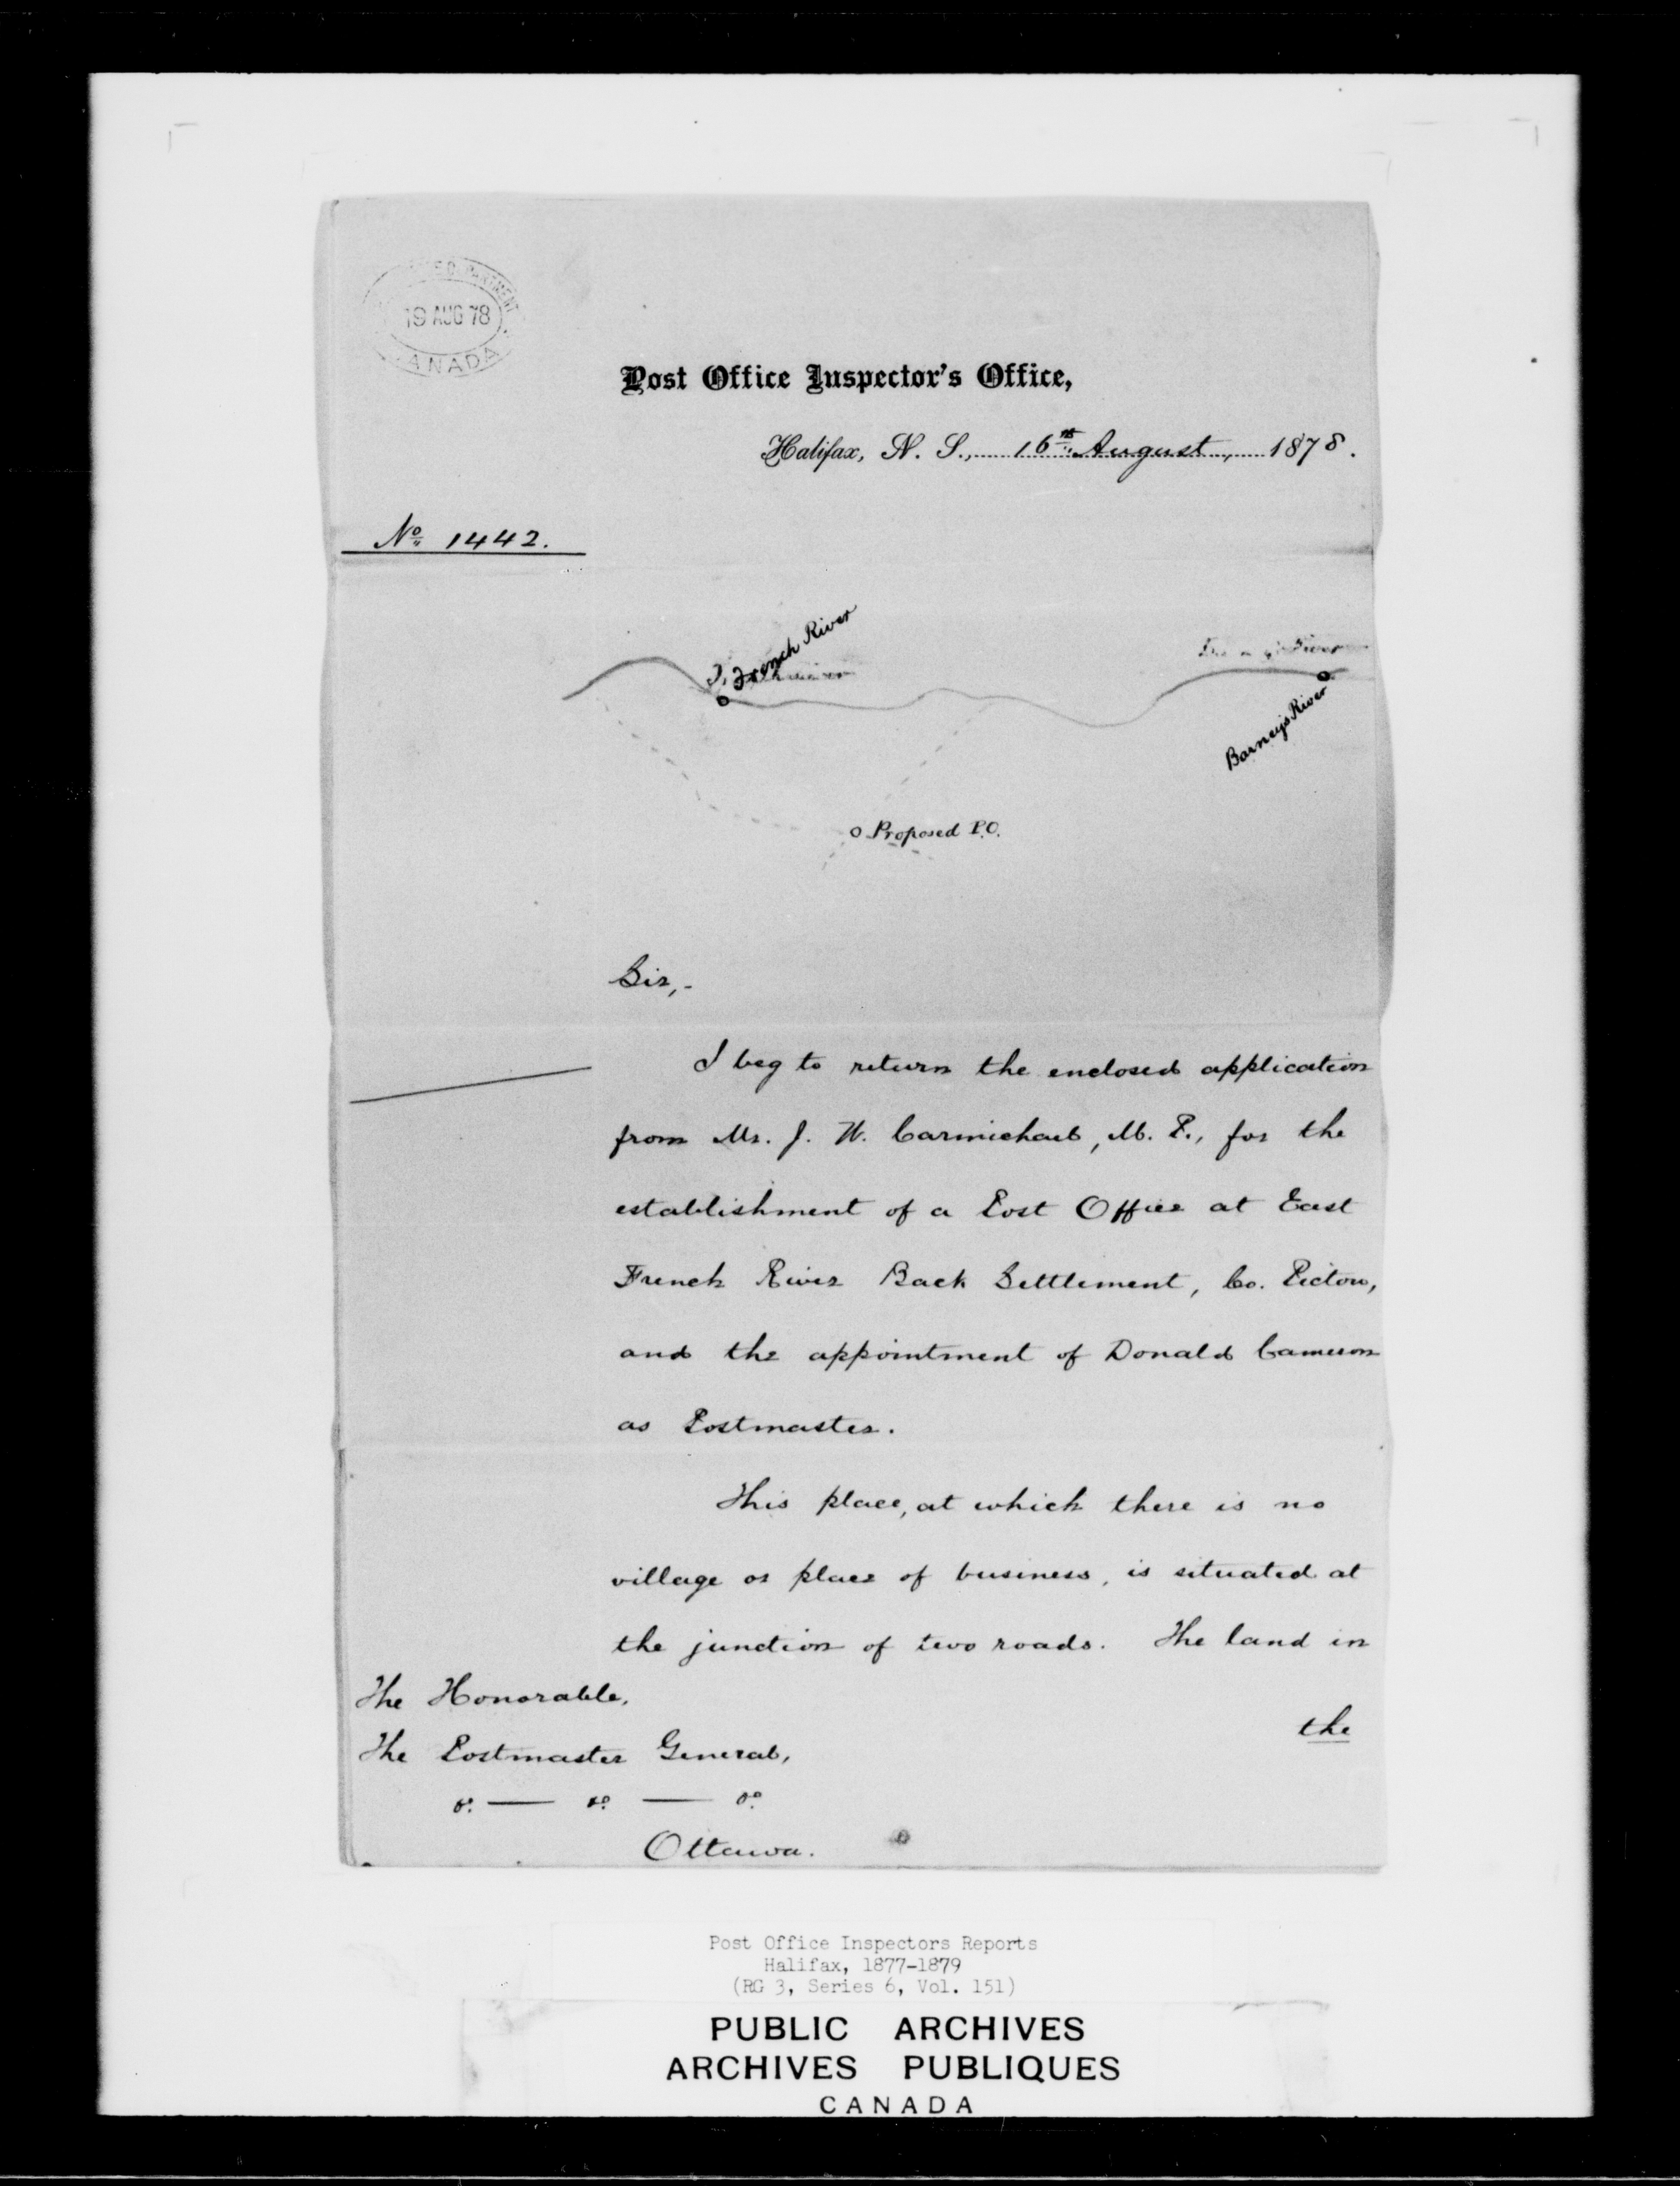 19 AUG 78
CANADA
Post Office Inspector's Office,
Halifax, N. S., 16th August, 1878.
No 1442.
French River
River
Barney's River
Proposed P.O.
Sir,-
I beg to return the enclosed application
from Mr. J. W. Carmichael, M. P., for the
establishment of a Post Office at East
French River Back Settlement, Co. Pictou,
and the appointment of Donald Cameron
as Postmaster.
This place, at which there is no
village or place of business, is situated at
the junction of two roads. The land in
the
The Honorable,
The Postmaster General,
Ottawa.
Post Office Inspectors Reports
Halifax, 1877-1879
(RG 3, Series 6, Vol. 151)
PUBLIC ARCHIVES
ARCHIVES PUBLIQUES
CANADA